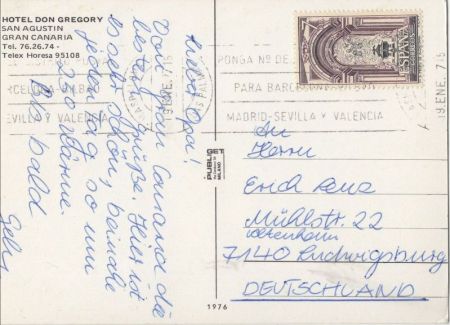 HOTEL DON GREGORY
SAN AGUSTIN
GRAN CANARIA
Tel. 76.26.74 -
Telex Horesa 95108
Lieber Opa!
Von Gran Canaria die
besten Grüße. Hier ist
es sehr schön, beinahe
jeden Tag so um
20° Wärme.
Bis bald
ESPAÑA
19 ENE. 75
PONGA Nº DE
PARA BARCELONA
MADRID-SEVILLA Y VALENCIA
SEVILLA Y VALENCIA
19 ENE. 75
PUBLIGET
MILANO
An
Herrn
Erich
Mühlstr. 22
7140 Ludwigsburg
DEUTSCHLAND
1976